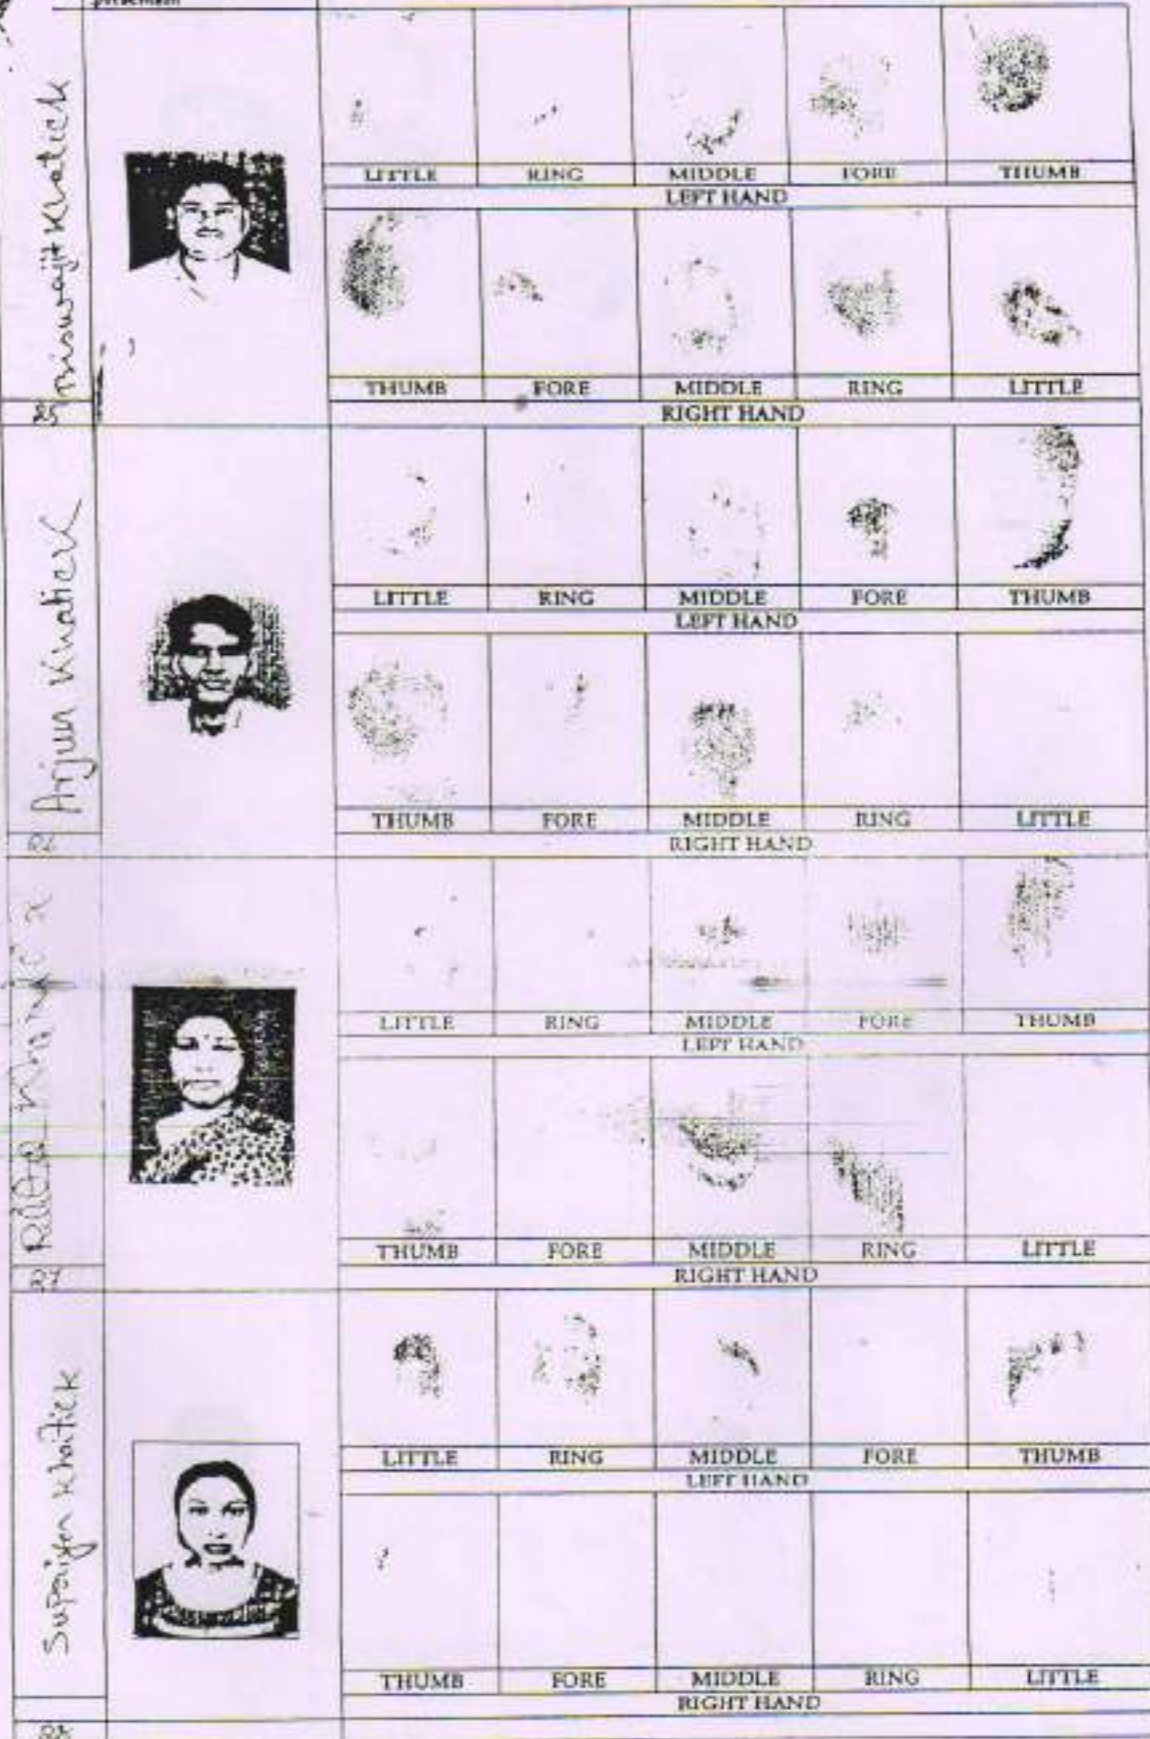 Biswajit Khatick
LITTLE RING MIDDLE FORE THUMB
LEFT HAND
THUMB FORE MIDDLE RING LITTLE
RIGHT HAND
Arjun Khatick
LITTLE RING MIDDLE FORE THUMB
LEFT HAND
THUMB FORE MIDDLE RING LITTLE
RIGHT HAND
LITTLE RING MIDDLE FORE THUMB
LEFT HAND
THUMB FORE MIDDLE RING LITTLE
RIGHT HAND
Supriya Khatick
LITTLE RING MIDDLE FORE THUMB
LEFT HAND
THUMB FORE MIDDLE RING LITTLE
RIGHT HAND